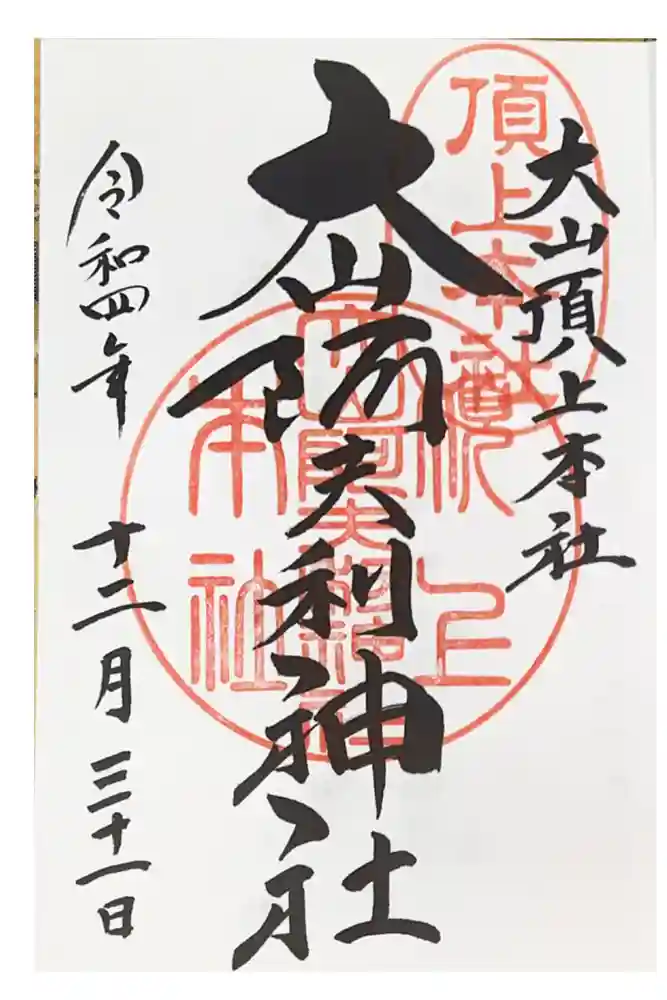 大山頂上本社
大山阿夫利神社
令和四年 十二月 三十一日
頂上本社